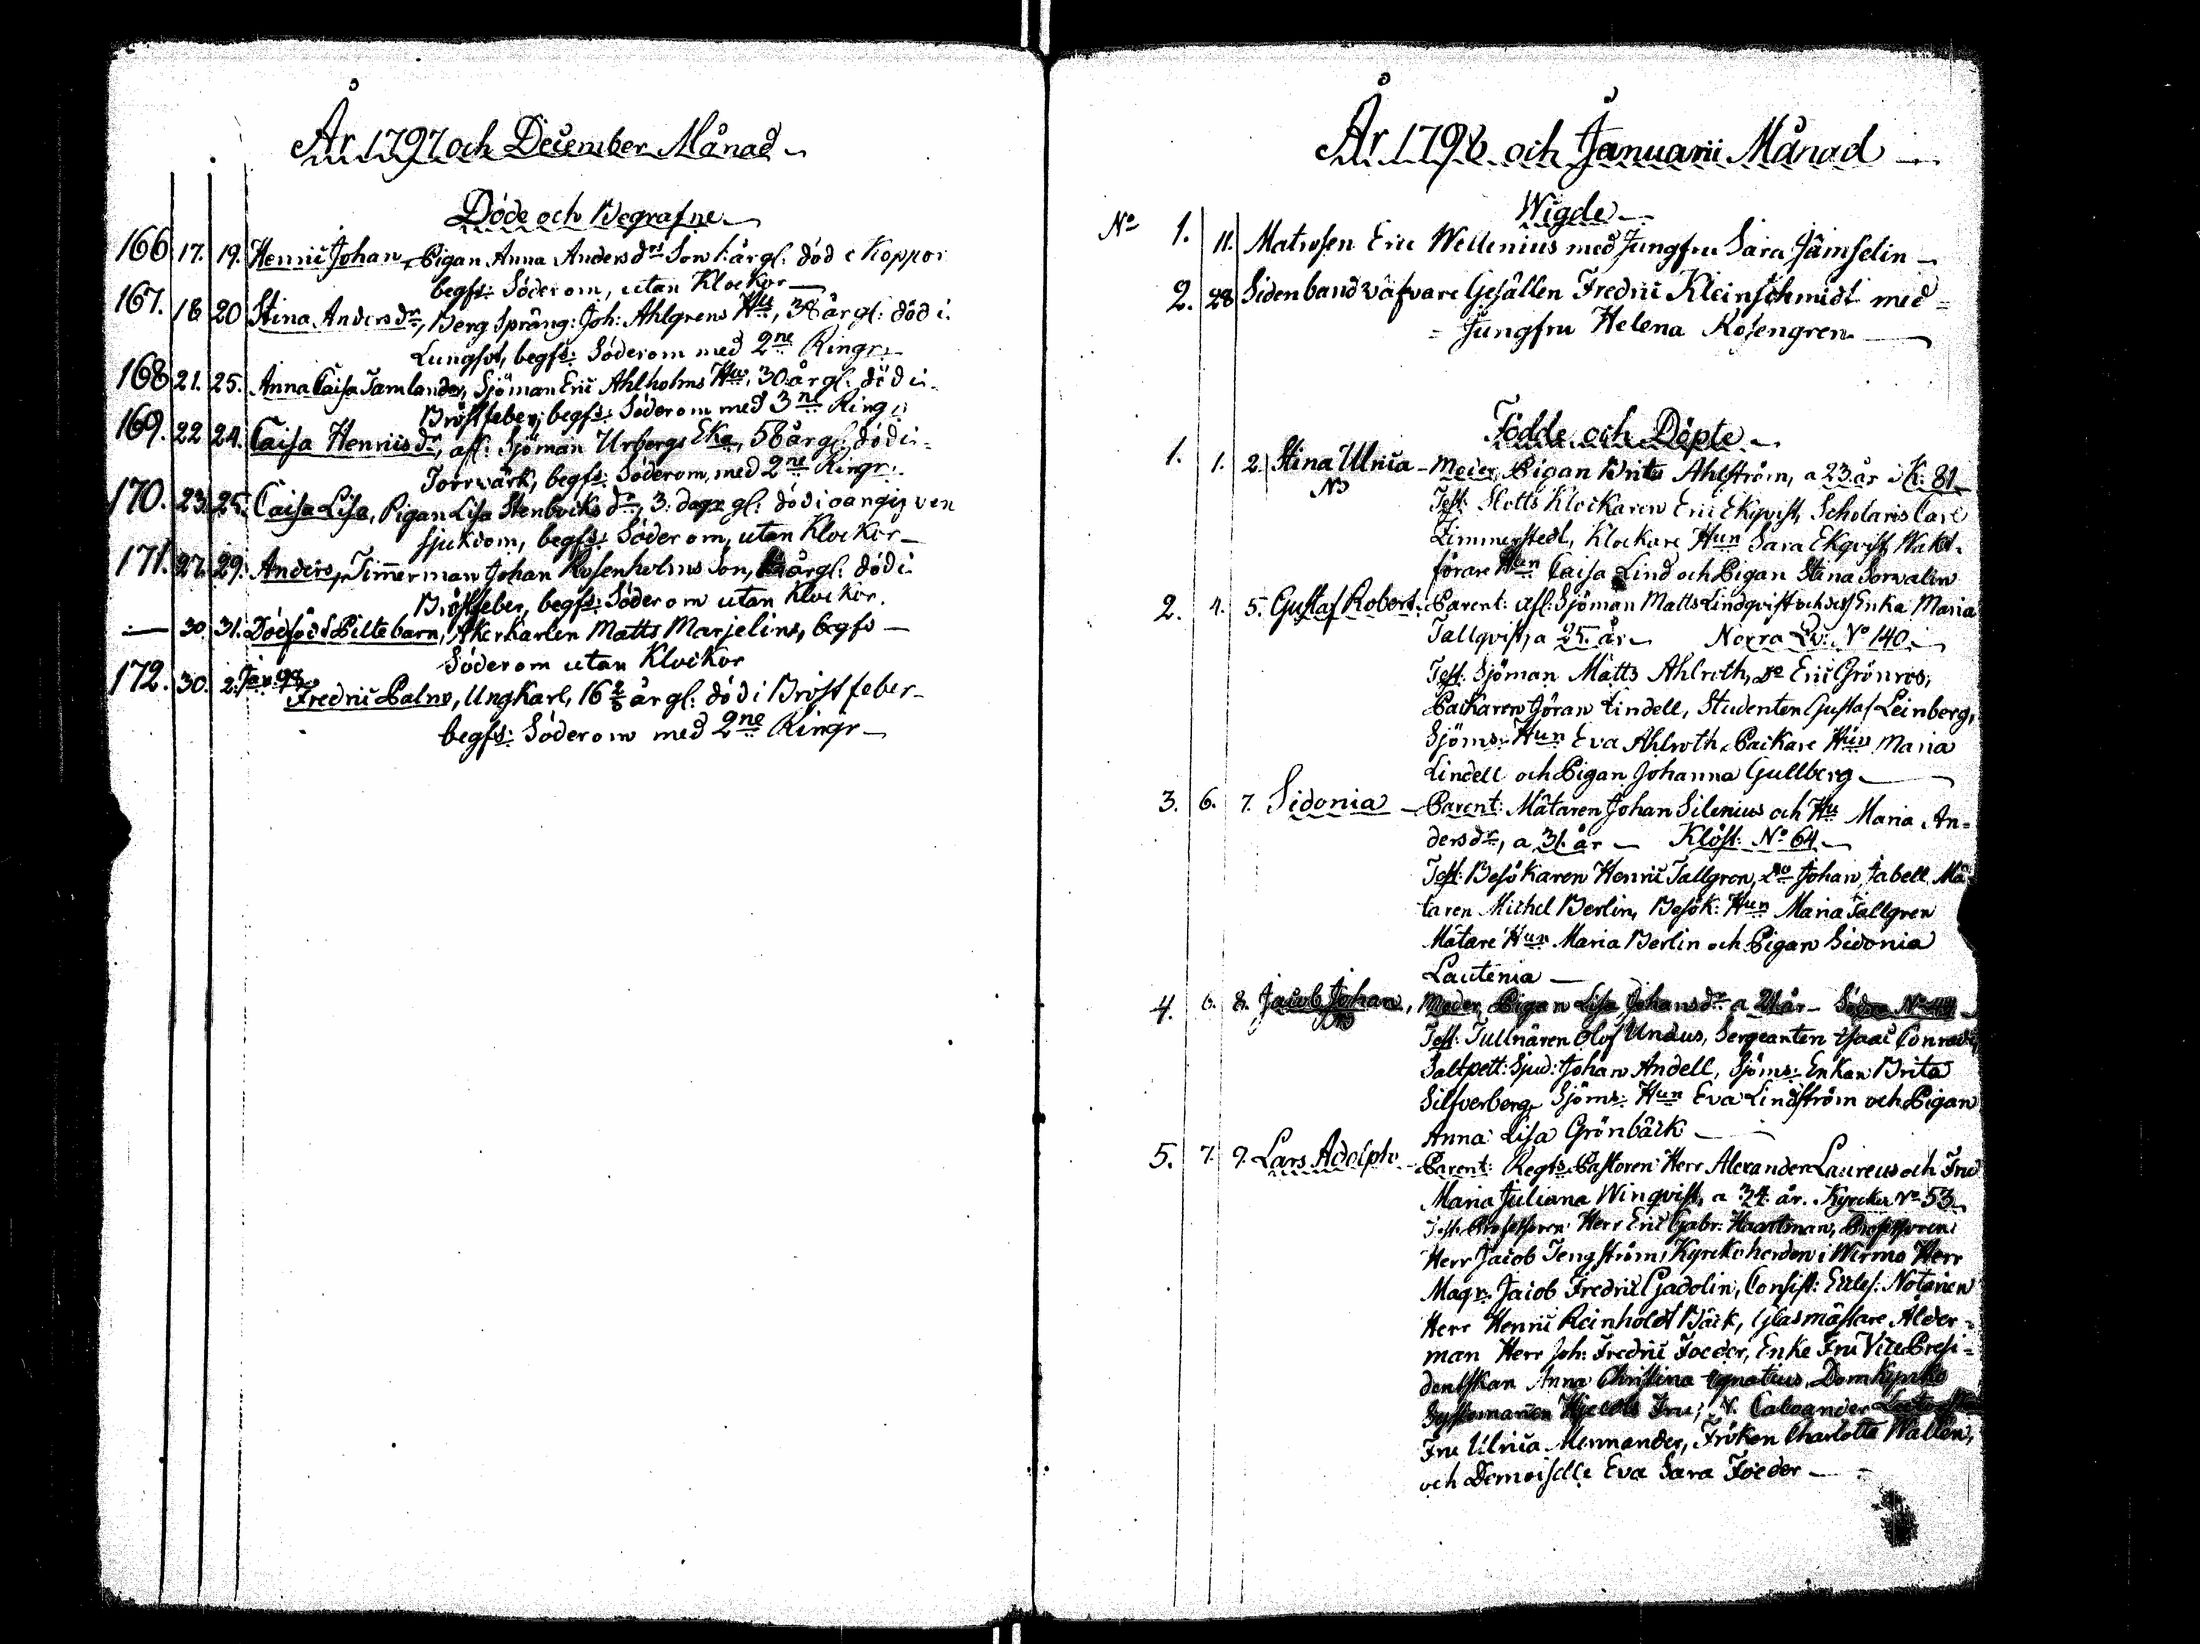 År 1797 och December Månad
Döde och Begrafne
166. 17. 19. Henric Johan, Pigan Anna Anders drs Son 1. år gl: död i Koppor
begfs: Söderom, utan Klockor
167. 18 20 Stina Anders dr, Berg Språng: Joh: Ahlgrens Hu, 38 år gl: död i
Lungsot, begfs: Söderom med 2ne Ringr
168 21. 25. Anna Caisa Tamlander, Sjöman Eric Ahlholms Hu, 30. år gl: död i
Bröstfeber, begfs: Söderom med 3ne Ringr
169. 22 24. Caisa Henrics dr, afl: Sjöman Urbergs Eka, 58 år gl: död i
Torrwärk, begfs: Söderom, med 2ne Ringr
170. 23. 25. Caisa Lisa, Pigan Lisa Stenbecks dr, 3. dagr gl: död i oangifven
sjukdom, begfs: Söderom, utan Klockor
171. 27. 29. Anders, Timmerman Johan Rosenholms Son, år gl: död i
Bröstfeber, begfs: Söderom utan Klockor.
30 31. Dödfödt Piltebarn, Åkerkarlen Matts Marjelins, begfs
Söderom utan Klockor
172. 30. 2. Jan: 98. Fredric Palno, Ungkarl, 16 år gl: död i Bröstfeber
begfs: Söderom med 2ne Ringr
År 1798 och Januarii Månad
Wigde
No 1. 11. Matrosen Eric Wellenius med Jungfru Sara Jämselin
2. 28 Sidenbandväfvare Gesällen Fredric Kleinschmidt med
Jungfru Helena Rosengren
Födde och Döpte
1. 1. 2. Stina Ulrica Moder, Pigan Brita Ahlström, a 23. år K: 81
NB Test: Slotts Klockaren Eric Ekqvist, Scholaris Carl
Zimmerstedt, Klockare Hun Sara Ekqvist, Wakt-
förare Hun Caisa Lind och Pigan Stina Sorvalin
2. 4. 5. Gustaf Robert. Parent: afl: Sjöman Matts Lindqvist och dess Enka Maria
Tallqvist, a 25. år Norra Qv: No 140.
Test: Sjöman Matts Ahlroth, Do Eric Grönros,
Packaren Göran Lindell, Studenten Gustaf Leinberg,
Sjöms: Hun Eva Ahlroth, Packare Hun Maria
Lindell och Pigan Johanna Gullberg
3. 6. 7. Sidonia Parent: Mätaren Johan Silenius och Hu Maria An-
ders dr, a 31. år Klöst: No 64
Test: Besökaren Henric Tallgren, Do Johan Tabell, Mä-
taren Michel Berlin, Besök: Hun Maria Tallgren
Mätare Hun Maria Berlin och Pigan Sidonia
Lautenia
4. 6. 8. Jacob Johan, Moder, Pigan Lisa Johans dr a 21 år Södra No
NB Test: Tullnären Olof Undus, Sergeanten Isaac
Saltpett: Sjud: Johan Andell, Sjöms: Enkan Brita
Silfverberg, Sjöms: Hun Eva Lindström och Pigan
Anna Lisa Grönbäck
5. 7. 9. Lars Adolph Parent: Regts Pastoren Herr Alexander Laureus och Fru
Maria Juliana Winqvist, a 34. år. Kyrcko No 53
Test: Professoren Herr Eric Gabr: Haartman, Professoren
Herr Jacob Tengström, Kyrckoherden i Wirmo Herr
Magr: Jacob Fredric Gadolin, Consist: Eccles: Notarien
Herr Henric Reinholdt Bäck, Glasmästare Ålder-
man Herr Joh: Fredric Foeder, Enke Fru Vice Presi-
dentskan Anna Christina Ignatius, Domkyrko
Sysslomannen Fru, V. Caloander
Fru Ulrica Mennander, Fröken Charlotta Wallen,
och Demoiselle Eva Sara Foeder